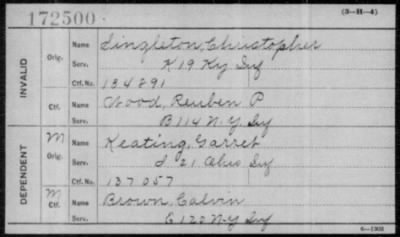 172500. (3-H-4)
INVALID
Orig. Name Singleton, Christopher
Serv. K 19 Ky Inf
Ctf. No. 134891
Ctf. Name Wood, Reuben P
Serv. B 114 N.Y. Inf
DEPENDENT
M Orig. Name Keating, Garret
Serv. I 21 Ohio Inf
Ctf. No. 137057
M Ctf. Name Brown, Calvin
Serv. C 120 N-Y Inf